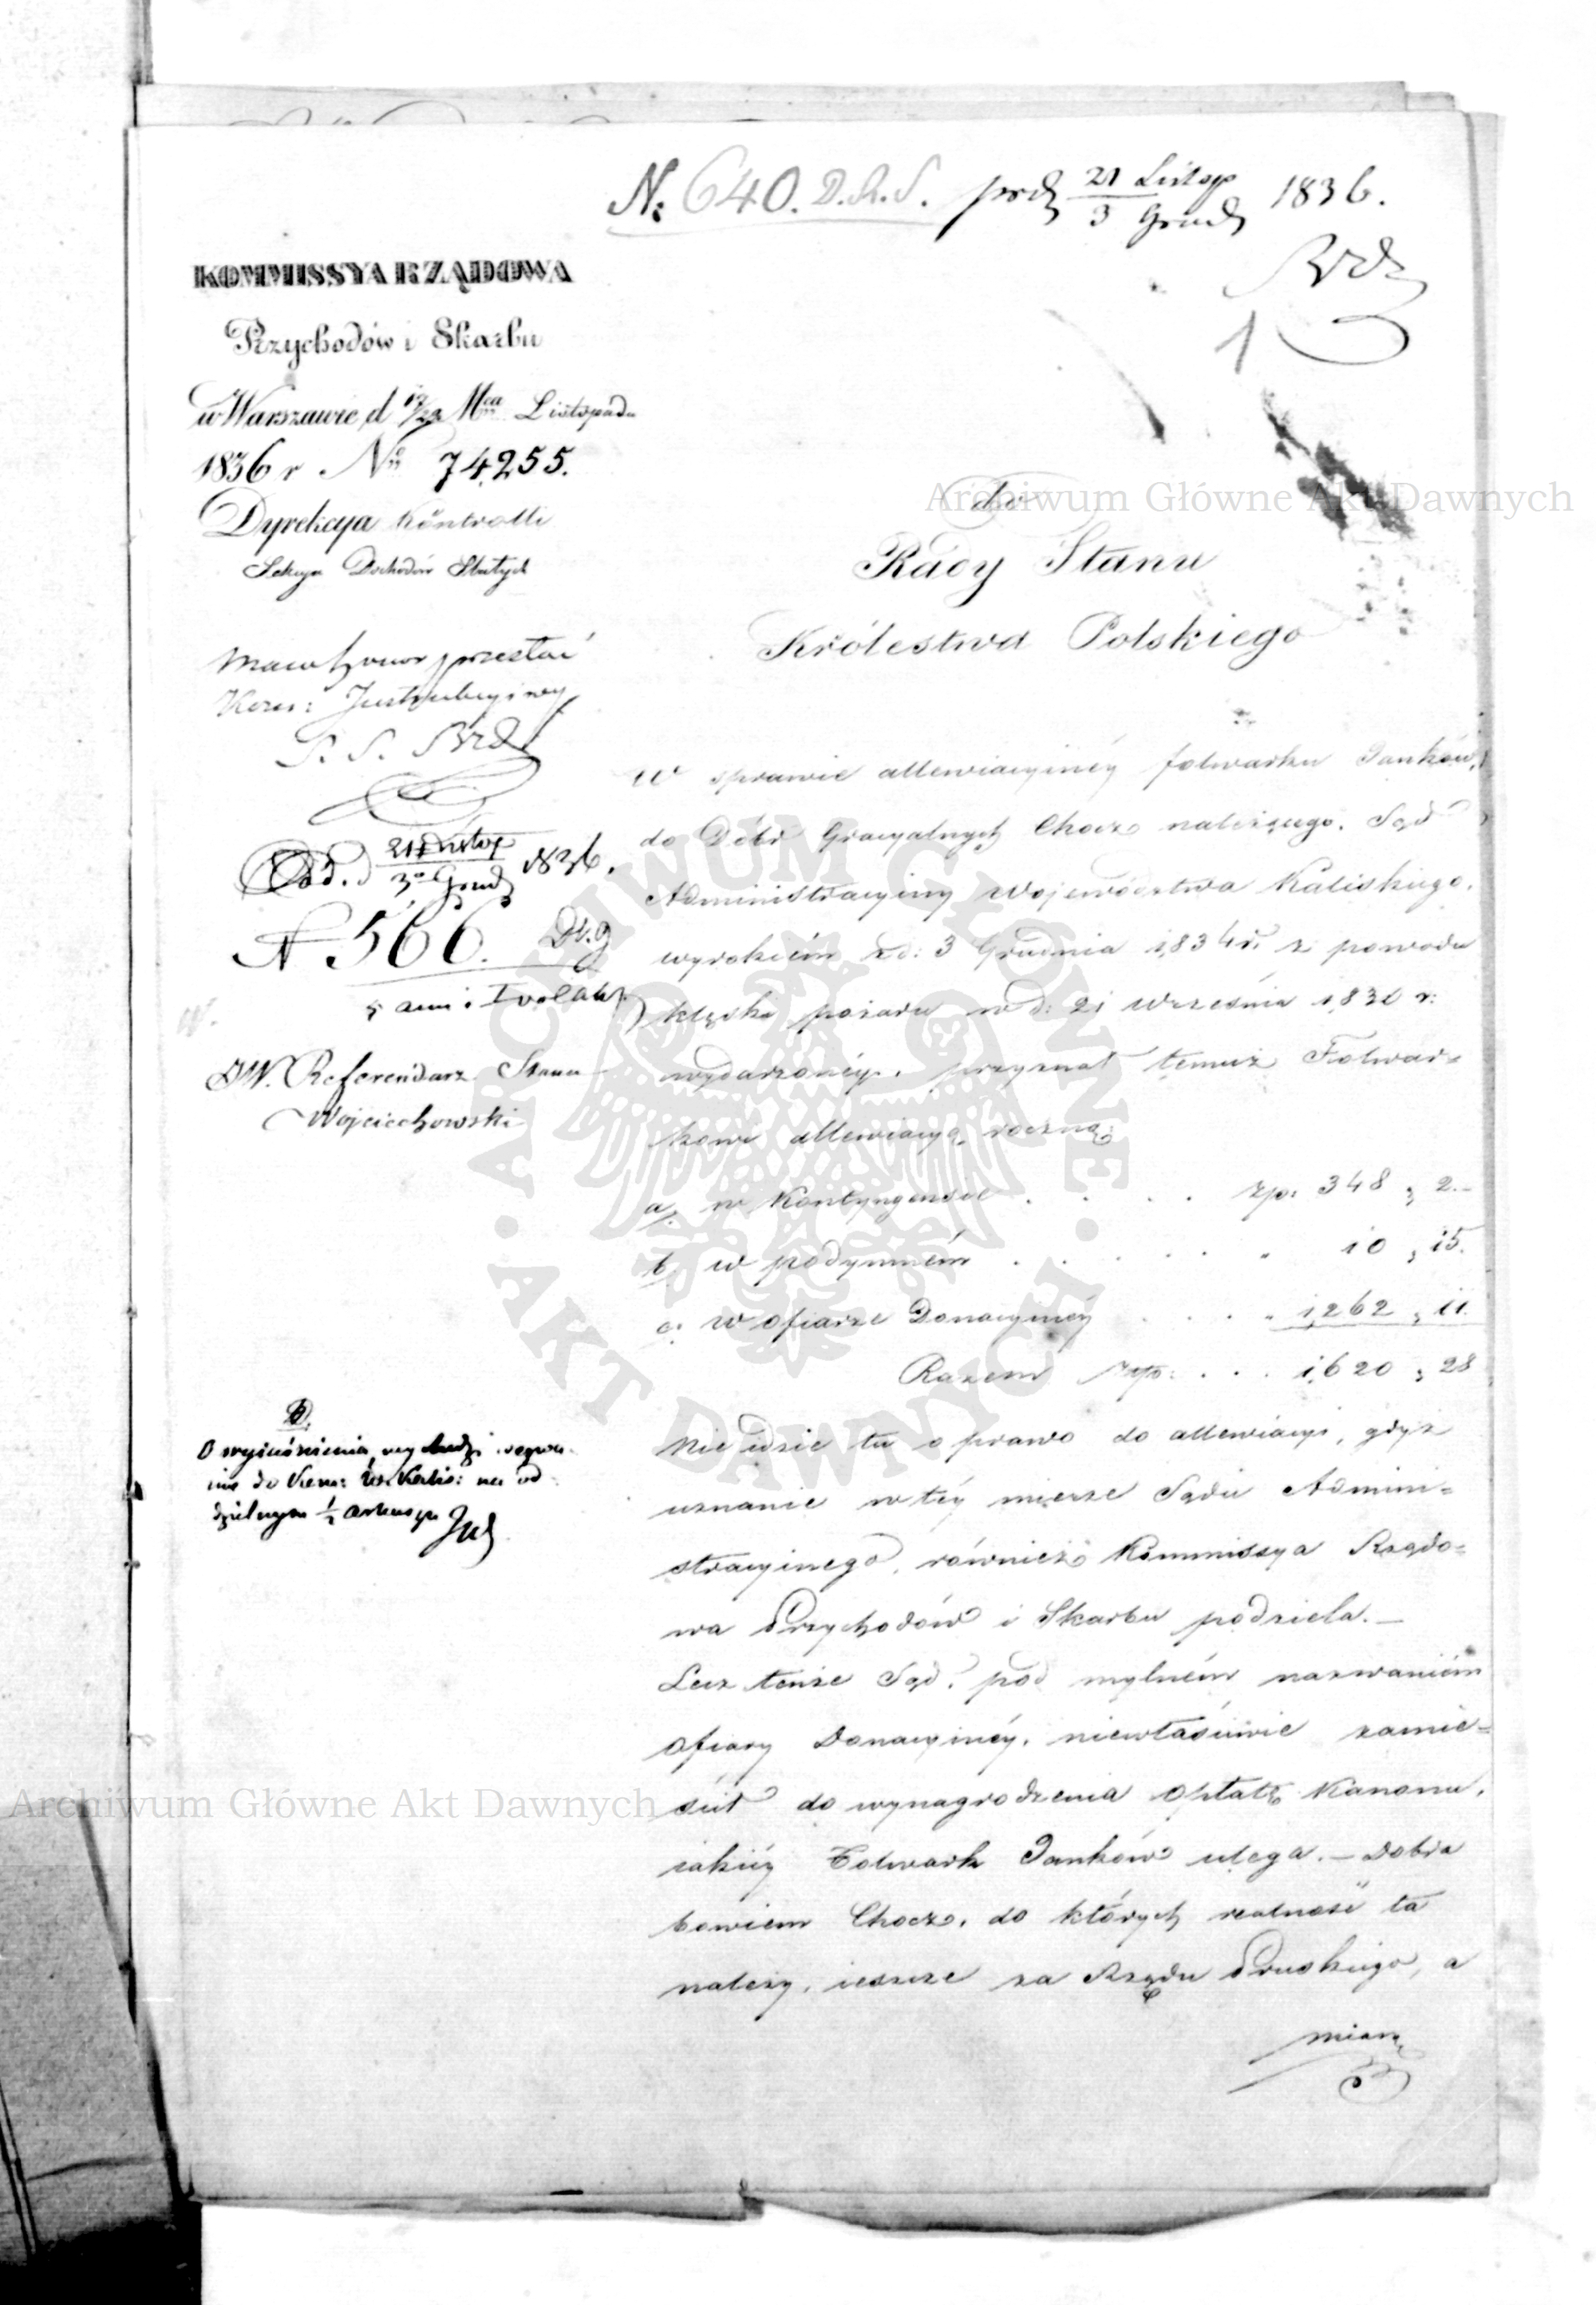 № 640. D.R.S. prd 21 Listop / 3 Grud 1836.
1
KOMMISSYA RZĄDOWA
Przychodów i Skarbu
w Warszawie d 17/29 Mca Listopada
1836 r. No 74,255.
Dyrekcya Kontrolli
Sekcya Dochodów Stałych
do
Rady Stanu
Królestwa Polskiego
mam honor przesłać
S. S.
Od. d 21 Listop / 3 Grud 1836.
N 566.
JW. Referendarz Stanu
Wojciechowski
W sprawie allewiacyinéy folwarku Janków,
do Dóbr Gracyalnych Chocz należącego, Sąd
Administracyiny Województwa Kaliskiego,
wyrokiem z d: 3 Grudnia 1834 r. z powodu
klęski pożaru w d: 21 Września 1830 r:
wydarzonéy, przyznał temuż Folwar=
kowi allewiacyą roczną:
a, w Kontyngensie . . . . zp: 348 „ 2.-
b, w podymném . . . . . „ 10 „ 15.
c, w ofiarze Donacyinéy . . . „ 1,262 „ 11.
Razem zzp: . . . 1,620 „ 28
Nie idzie tu o prawo do allewiacyi, gdyż
uznanie w téy mierze Sądu Admini=
stracyinego, również Kommissya Rządo=
wa Przychodów i Skarbu podziela. —
Lecz tenże Sąd, pod mylném nazwaniem
ofiary Donacyinéy, niewłaściwie zamie=
ścił do wynagrodzenia opłatę Kanonu,
iakiéy Folwark Janków ulega. — Dobra
bowiem Chocz, do których realność ta
należy, ieszcze za Rządu Pruskiego, a
mian
O wyiaśnienia wychodzi wezwa-
nie do Kom: Woi: Kalis: na od-
dzielnym ½ arkuszu
Archiwum Główne Akt Dawnych
Archiwum Główne Akt Dawnych
· ARCHIWUM GŁÓWNE · AKT DAWNYCH